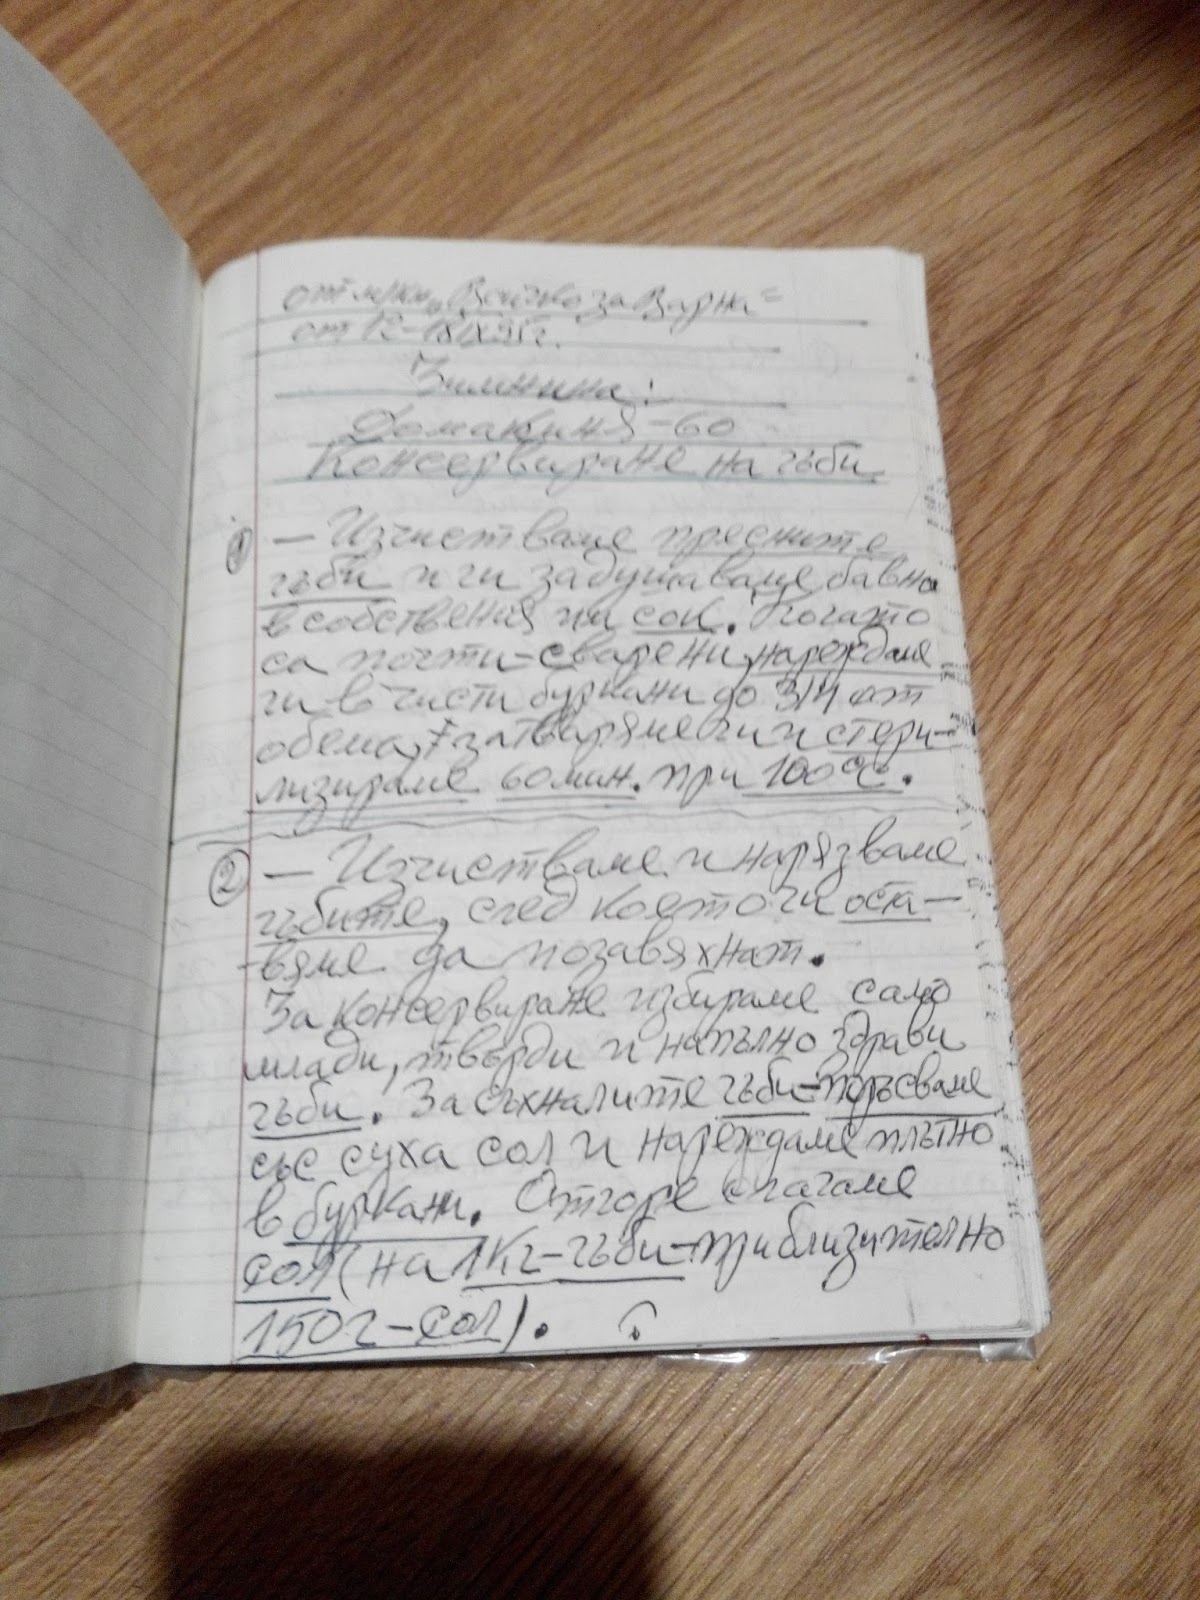 от „Всичко за Варна"
от 12-18.IX.95г.
Зимнина:
Домакиня-60
Консервиране на гъби
① — Изчистваме пресните
гъби и ги задушаваме бавно
в собствения им сок. Когато
са почти-сварени, нареждаме
ги в чисти буркани до 3/4 от
обема, затваряме ги и стери-
лизираме 60 мин. при 100°C.
② — Изчистваме и нарязваме
гъбите, след което ги оста-
-вяме да позавяхнат.
За консервиране избираме само
млади, твърди и напълно здрави
гъби. Засъхналите гъби-поръсваме
със суха сол и нареждаме плътно
в буркани. Отгоре слагаме
сол (на 1кг-гъби-приблизително
150г-сол).